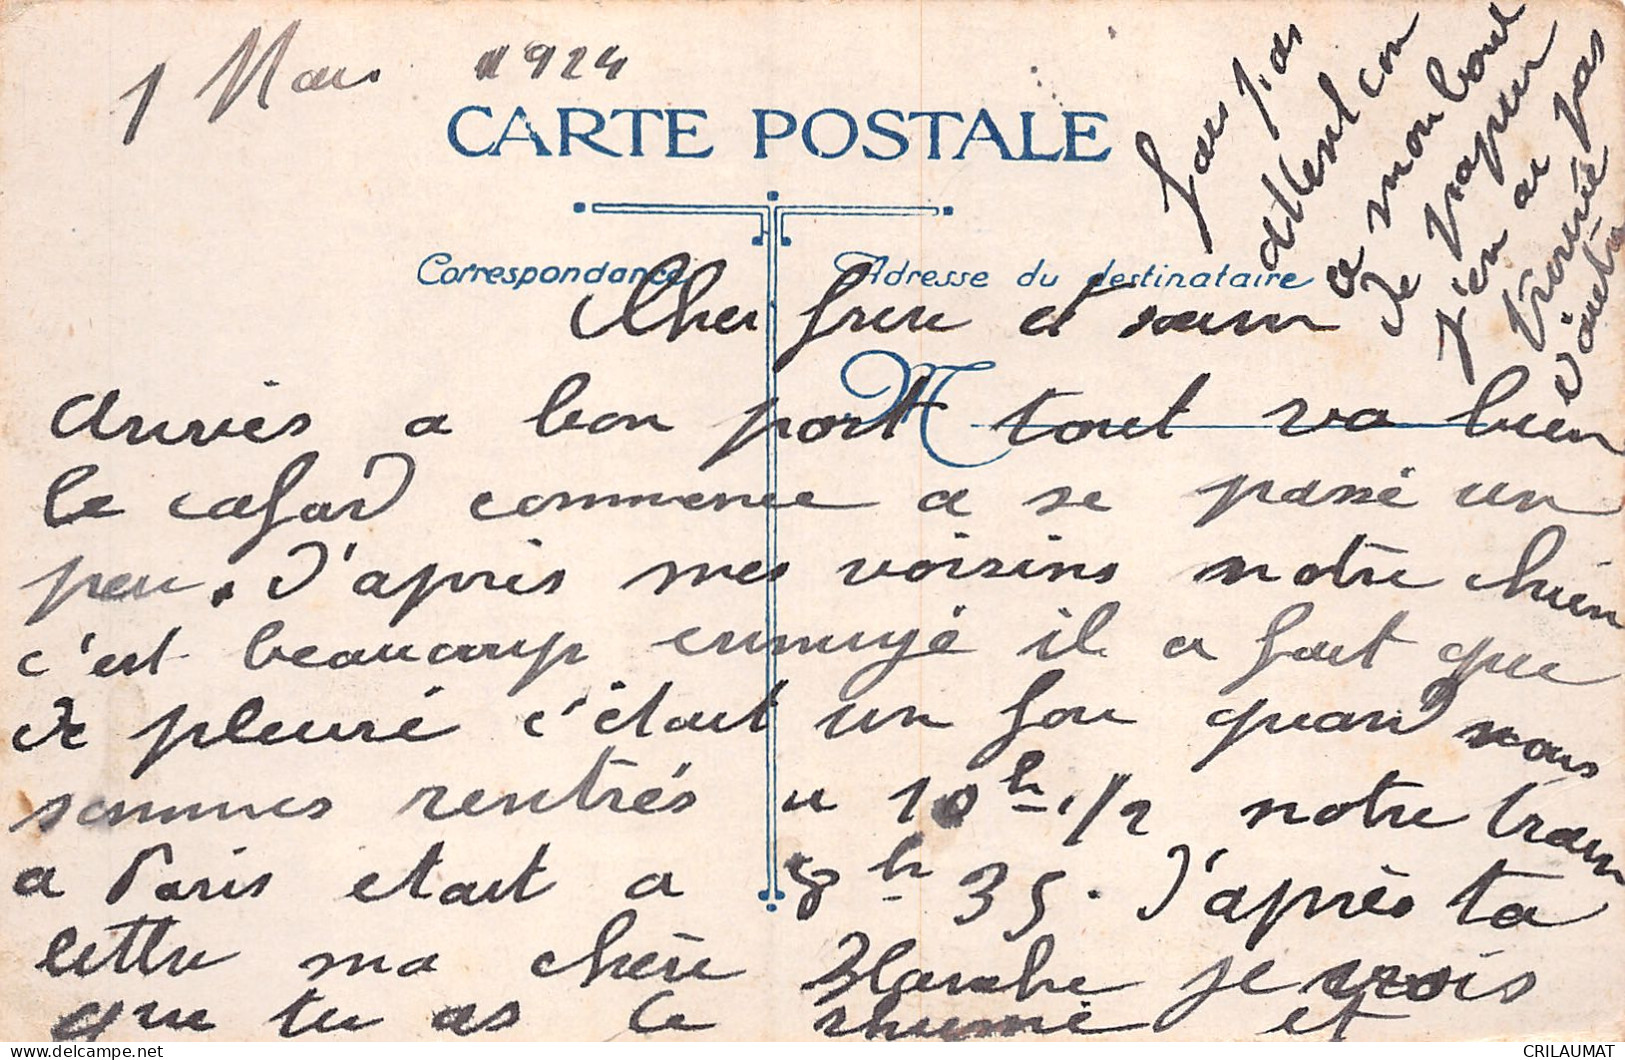 1 Mars 1924
CARTE POSTALE
Correspondance
Adresse du destinataire
M
Cher frere et sœur
Arrivés a bon port tout va bien
le cafard commence a se passé un
peu. D'après mes voisins notre chien
c'est beaucoup ennuyé il a fait que
de pleuré c'était un fou quand nous
sommes rentrés a 10h 1/2 notre train
a Paris etait a 8h 35. D'après ta
lettre ma chère Blanche je vois
que tu as le rhume et
fais pas
attention
a mon bout
de papier
j'en ai
trouvé pas
d'autre
CRILAUMAT